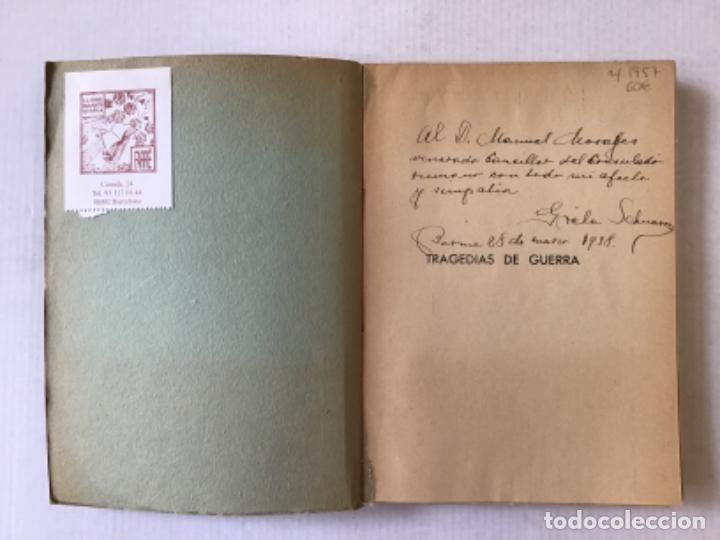 FARRÉ
Canuda, 24
Tel. 93 317 01 44
08002 Barcelona
1957
60€
Al D. Manuel Morales
venerado Canciller del Consulado
rumano con todo mi afecto
y simpatia
Gisela
28 de marzo 1938.
TRAGEDIAS DE GUERRA
todocoleccion